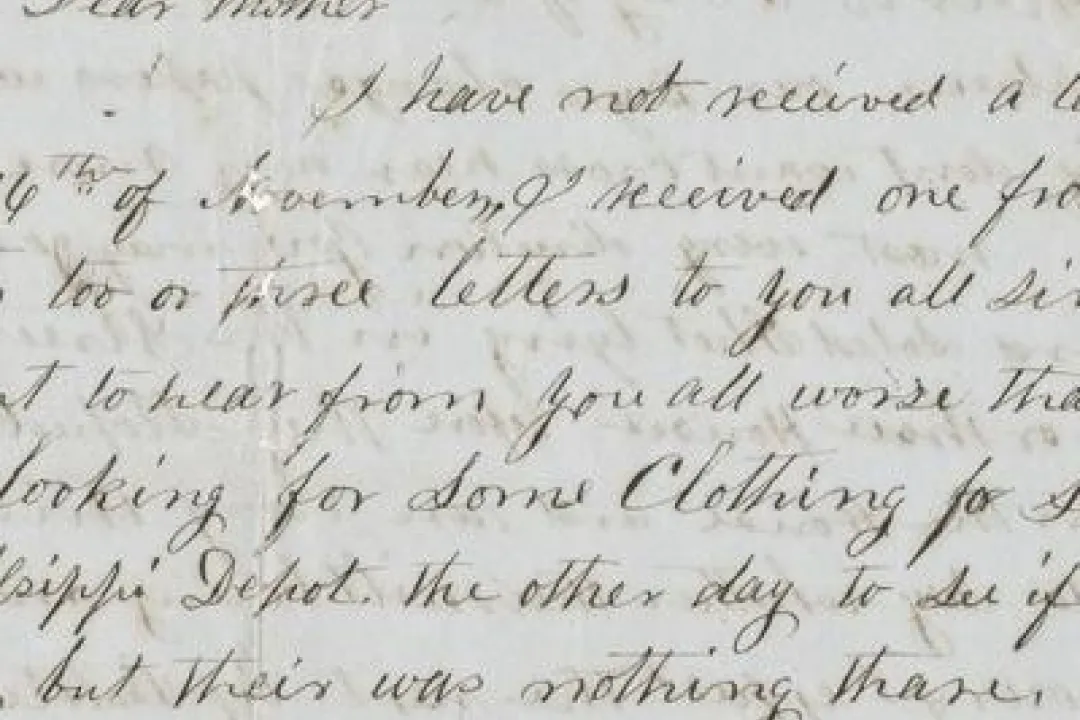 Dear Mother
I have not received a
6th of November, I received one
too or three letters to you all
to hear from you all worse
looking for Some Clothing for
Depot. the other day to See if
but their was nothing thare.